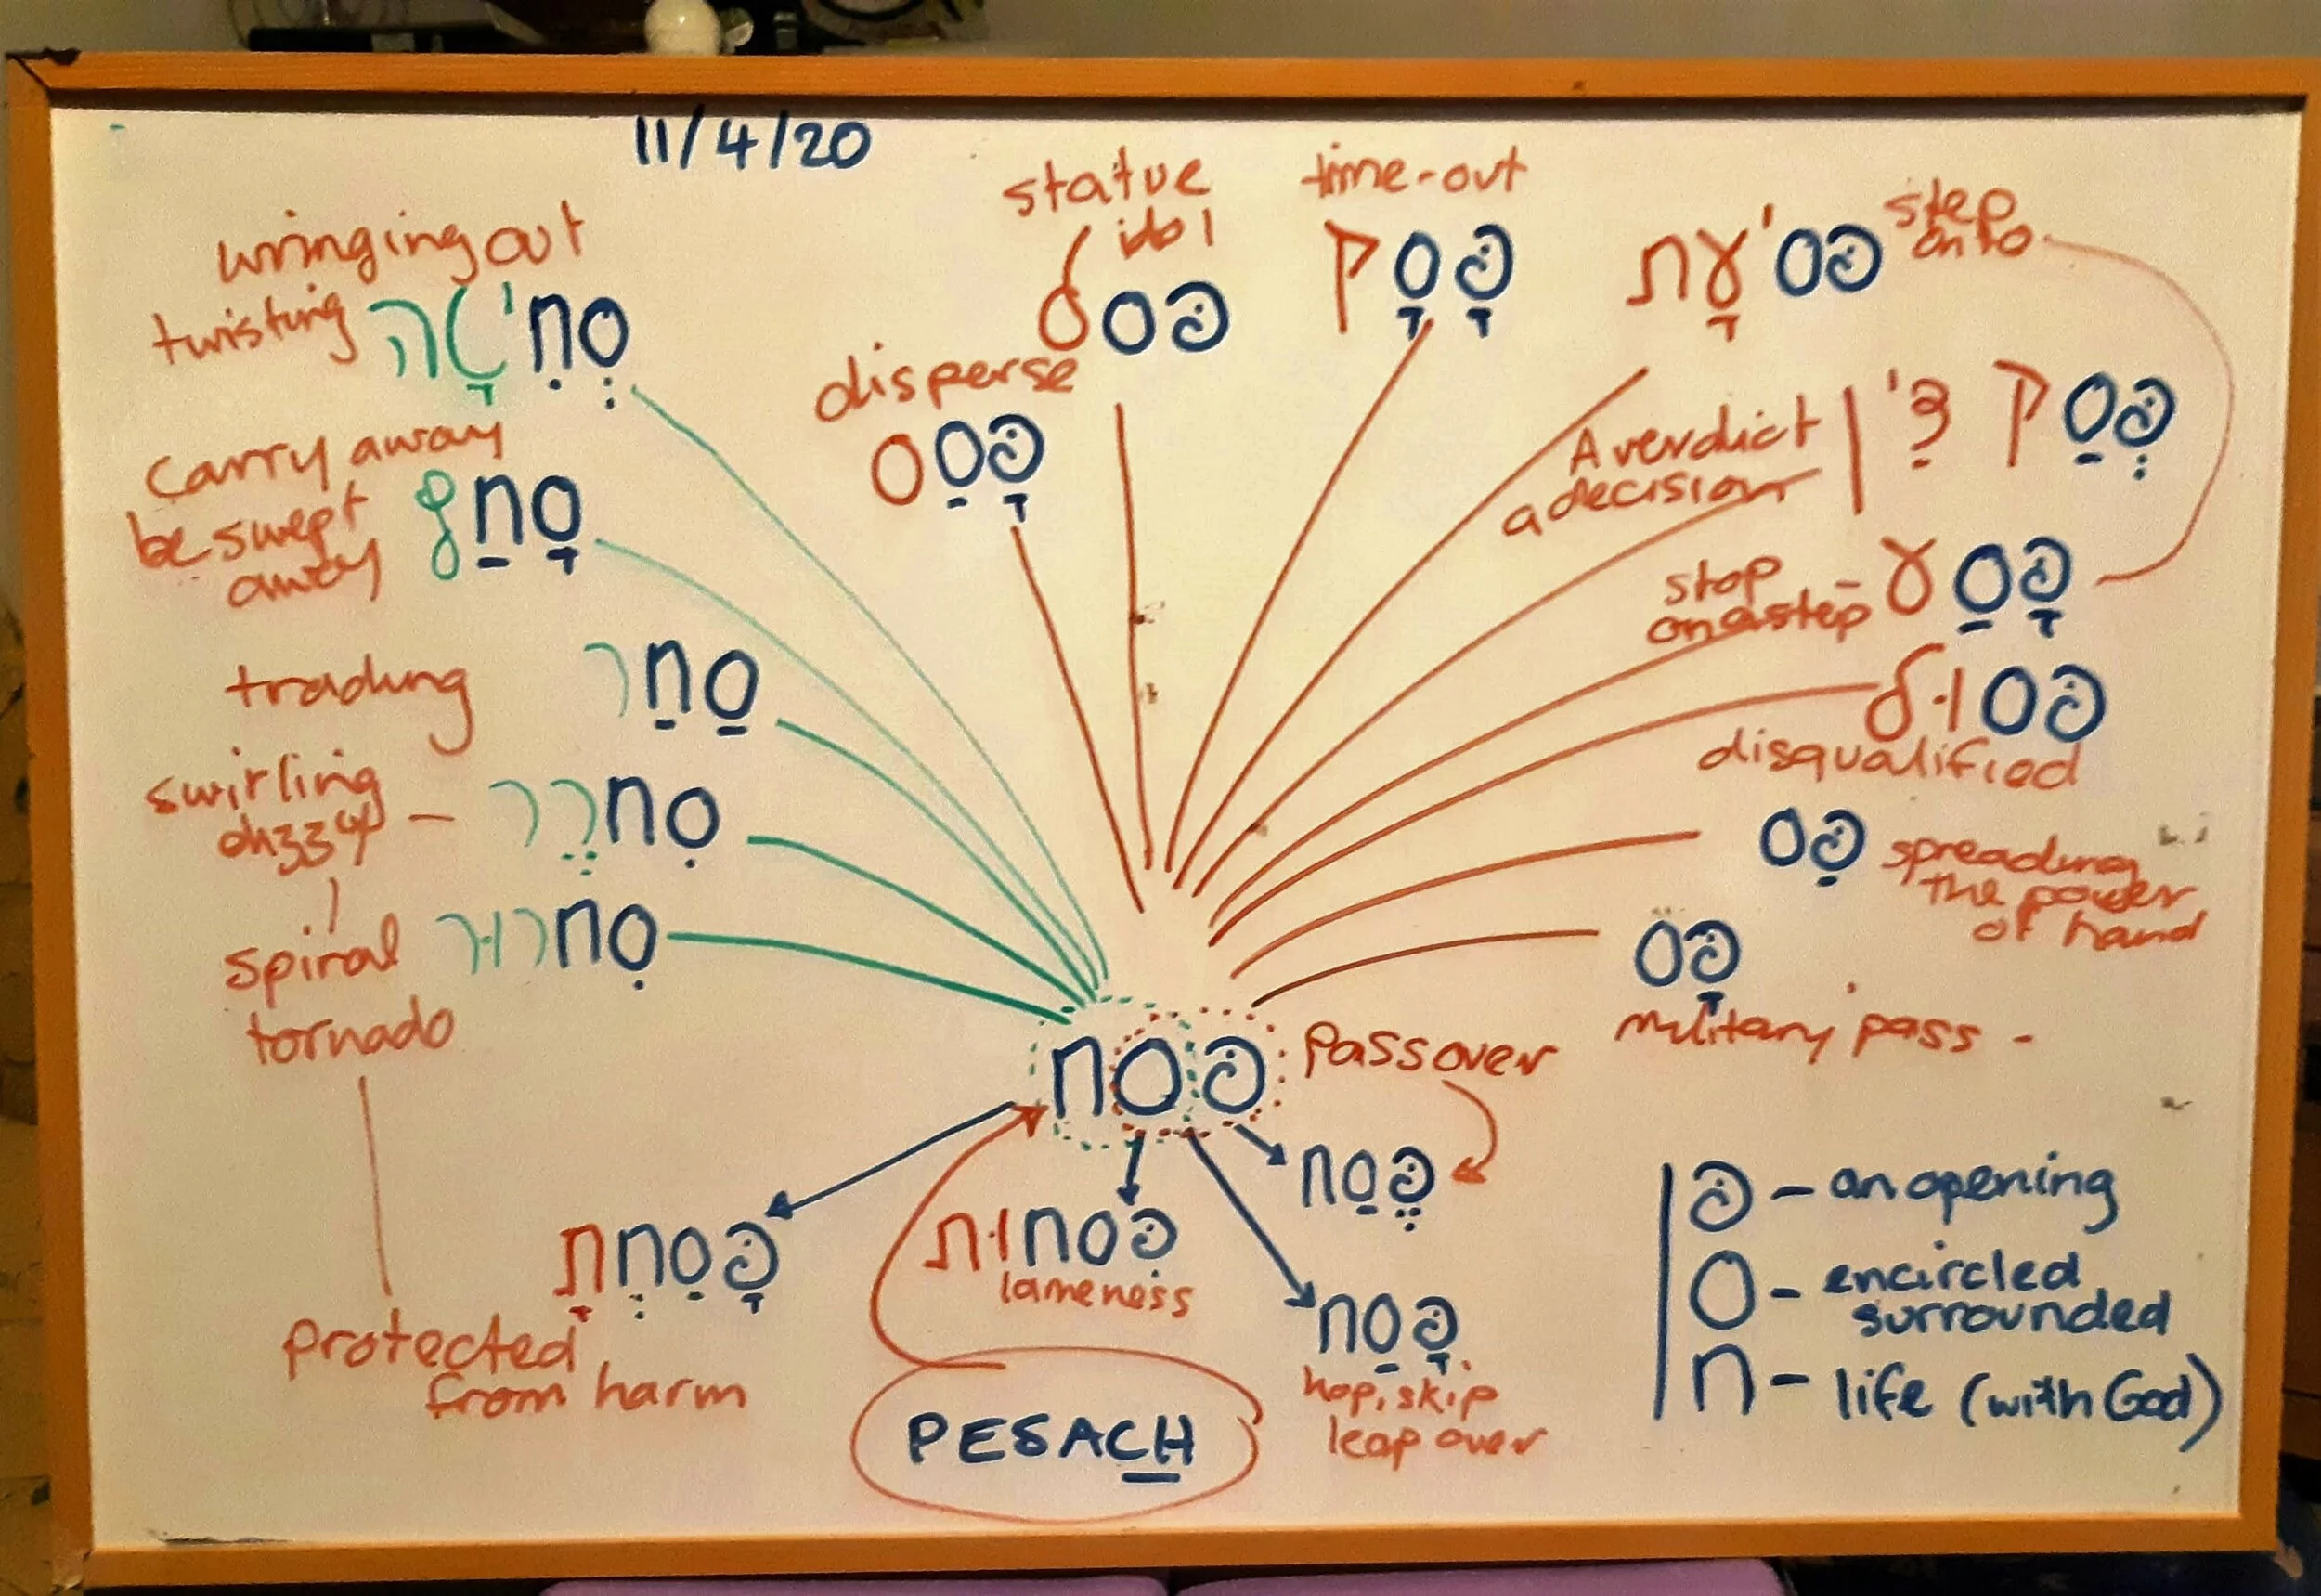 11/4/20
wringing out
twisting
סְחִיטָה
carry away
be swept
away
סָחַף
trading
סַחַר
swirling
dizzy –
סְחַרְחֵר
spiral
tornado
סְחרוּר
protected
from harm
פָּסִחְתָ
disperse
פָּסַס
statue
idol
פסל
time-out
פָּסָק
step
onto
פסיעָת
A verdict
a decision
פְּסַק דִּין
stop
on a step –
פָּסַע
פסול
disqualified
פַּס
spreading
the power
of hand
פָּס
military pass -
פסח
Passover
פֶּסַח
פסחות
lameness
פָּסַח
hop, skip
leap over
PESACH
פ – an opening
ס – encircled
surrounded
ח – life (with God)